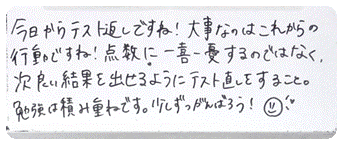 今日からテスト返しですね！大事なのはこれからの
行動ですね！点数に一喜一憂するのではなく、
次良い結果を出せるようにテスト直しをすること。
勉強は積み重ねです。少しずつがんばろう！